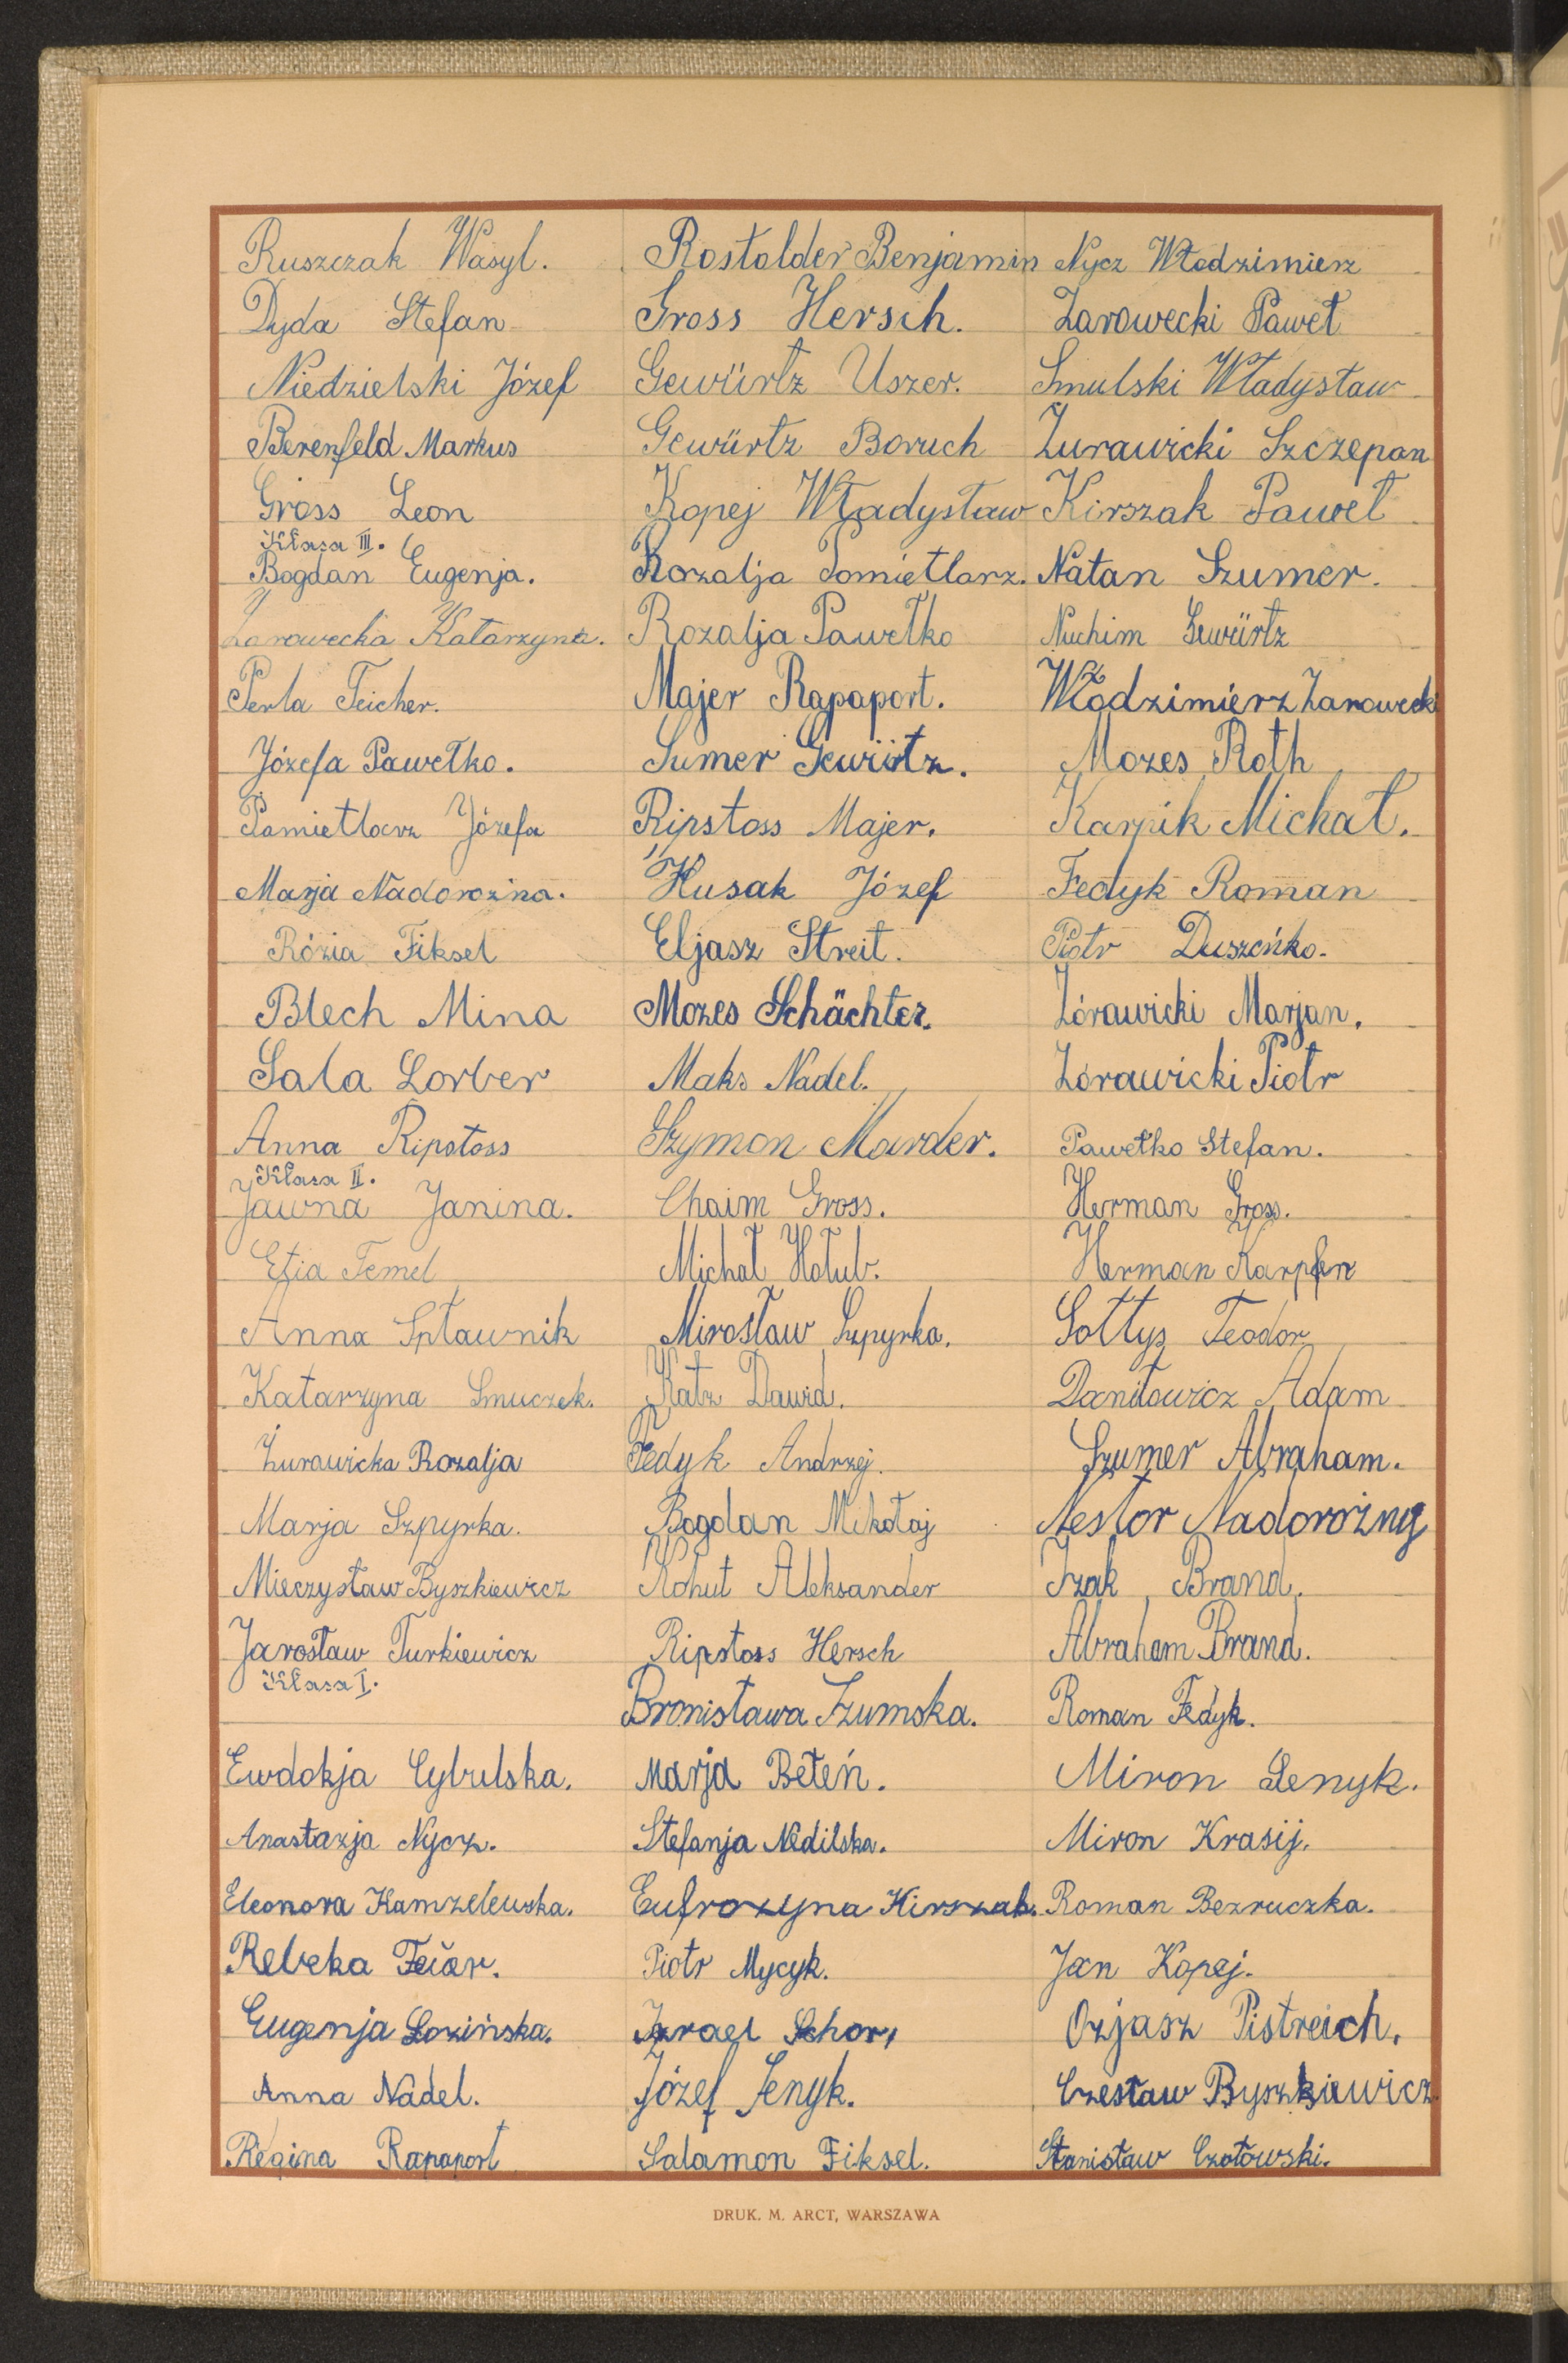 Ruszczak Wasyl.
Dyda Stefan
Niedzielski Józef
Berenfeld Markus
Gross Leon
Klasa III.
Bogdan Eugenja.
Żarowecka Katarzyna.
Perla Teicher.
Józefa Pawełko.
Pamietlarz Józefa
Marja Nadorożna.
Rózia Fiksel
Blech Mina
Sala Lorber
Anna Ripstoss
Klasa II.
Jawna Janina.
Etia Temel
Anna Spławnik
Katarzyna Smuczek.
Żurawicka Rozalja
Marja Szpyrka.
Mieczysław Byszkiewicz
Jarosław Turkiewicz
Klasa I.
Ewdokja Cybulska.
Anastazja Nycz.
Eleonora Kamzelewska.
Rebeka
Eugenja Łozińska.
Anna Nadel.
Regina Rapaport
Rostolder Benjamin
Gross Hersch.
Gewürtz Uszer.
Gewürtz Boruch
Kopej Władysław
Rozalja Pomietlarz.
Rozalja Pawełko
Majer Rapaport.
Sumer Gewürtz.
Ripstoss Majer.
Husak Józef
Eljasz Streit.
Mozes Schächter.
Maks Nadel.
Szymon Marder.
Chaim Gross.
Michał Hołub.
Mirosław Szpyrka.
Katz Dawid.
Fedyk Andrzej.
Bogdan Mikołaj
Kohut Aleksander
Ripstoss Hersch
Bronisława Szumska.
Marja Beteń.
Stefanja Nedilska.
Eufrozyna Kirszak.
Piotr Mycyk.
Izrael Schor.
Józef Senyk.
Salamon Fiksel.
Nycz Włodzimierz
Żarowecki Paweł
Smulski Władysław
Żurawicki Szczepan
Kirszak Paweł
Natan Szumer.
Nuchim Gewürtz
Włodzimierz Żarowecki
Mozes Roth
Karpik Michał.
Fedyk Roman
Piotr Duszeńko.
Żórawicki Marjan.
Żórawicki Piotr
Pawełko Stefan.
Herman Gross.
Herman Karpfen
Sołtys Teodor
Daniłowicz Adam
Szumer Abraham.
Nestor Nadorożny
Izak Brand.
Abraham Brand.
Roman Fedyk.
Miron Senyk.
Miron Krasij.
Roman Bezruczka.
Jan Kopej.
Ozjasz Pistreich.
Czesław Byszkiewicz.
Stanisław Czołowski.
DRUK. M. ARCT, WARSZAWA